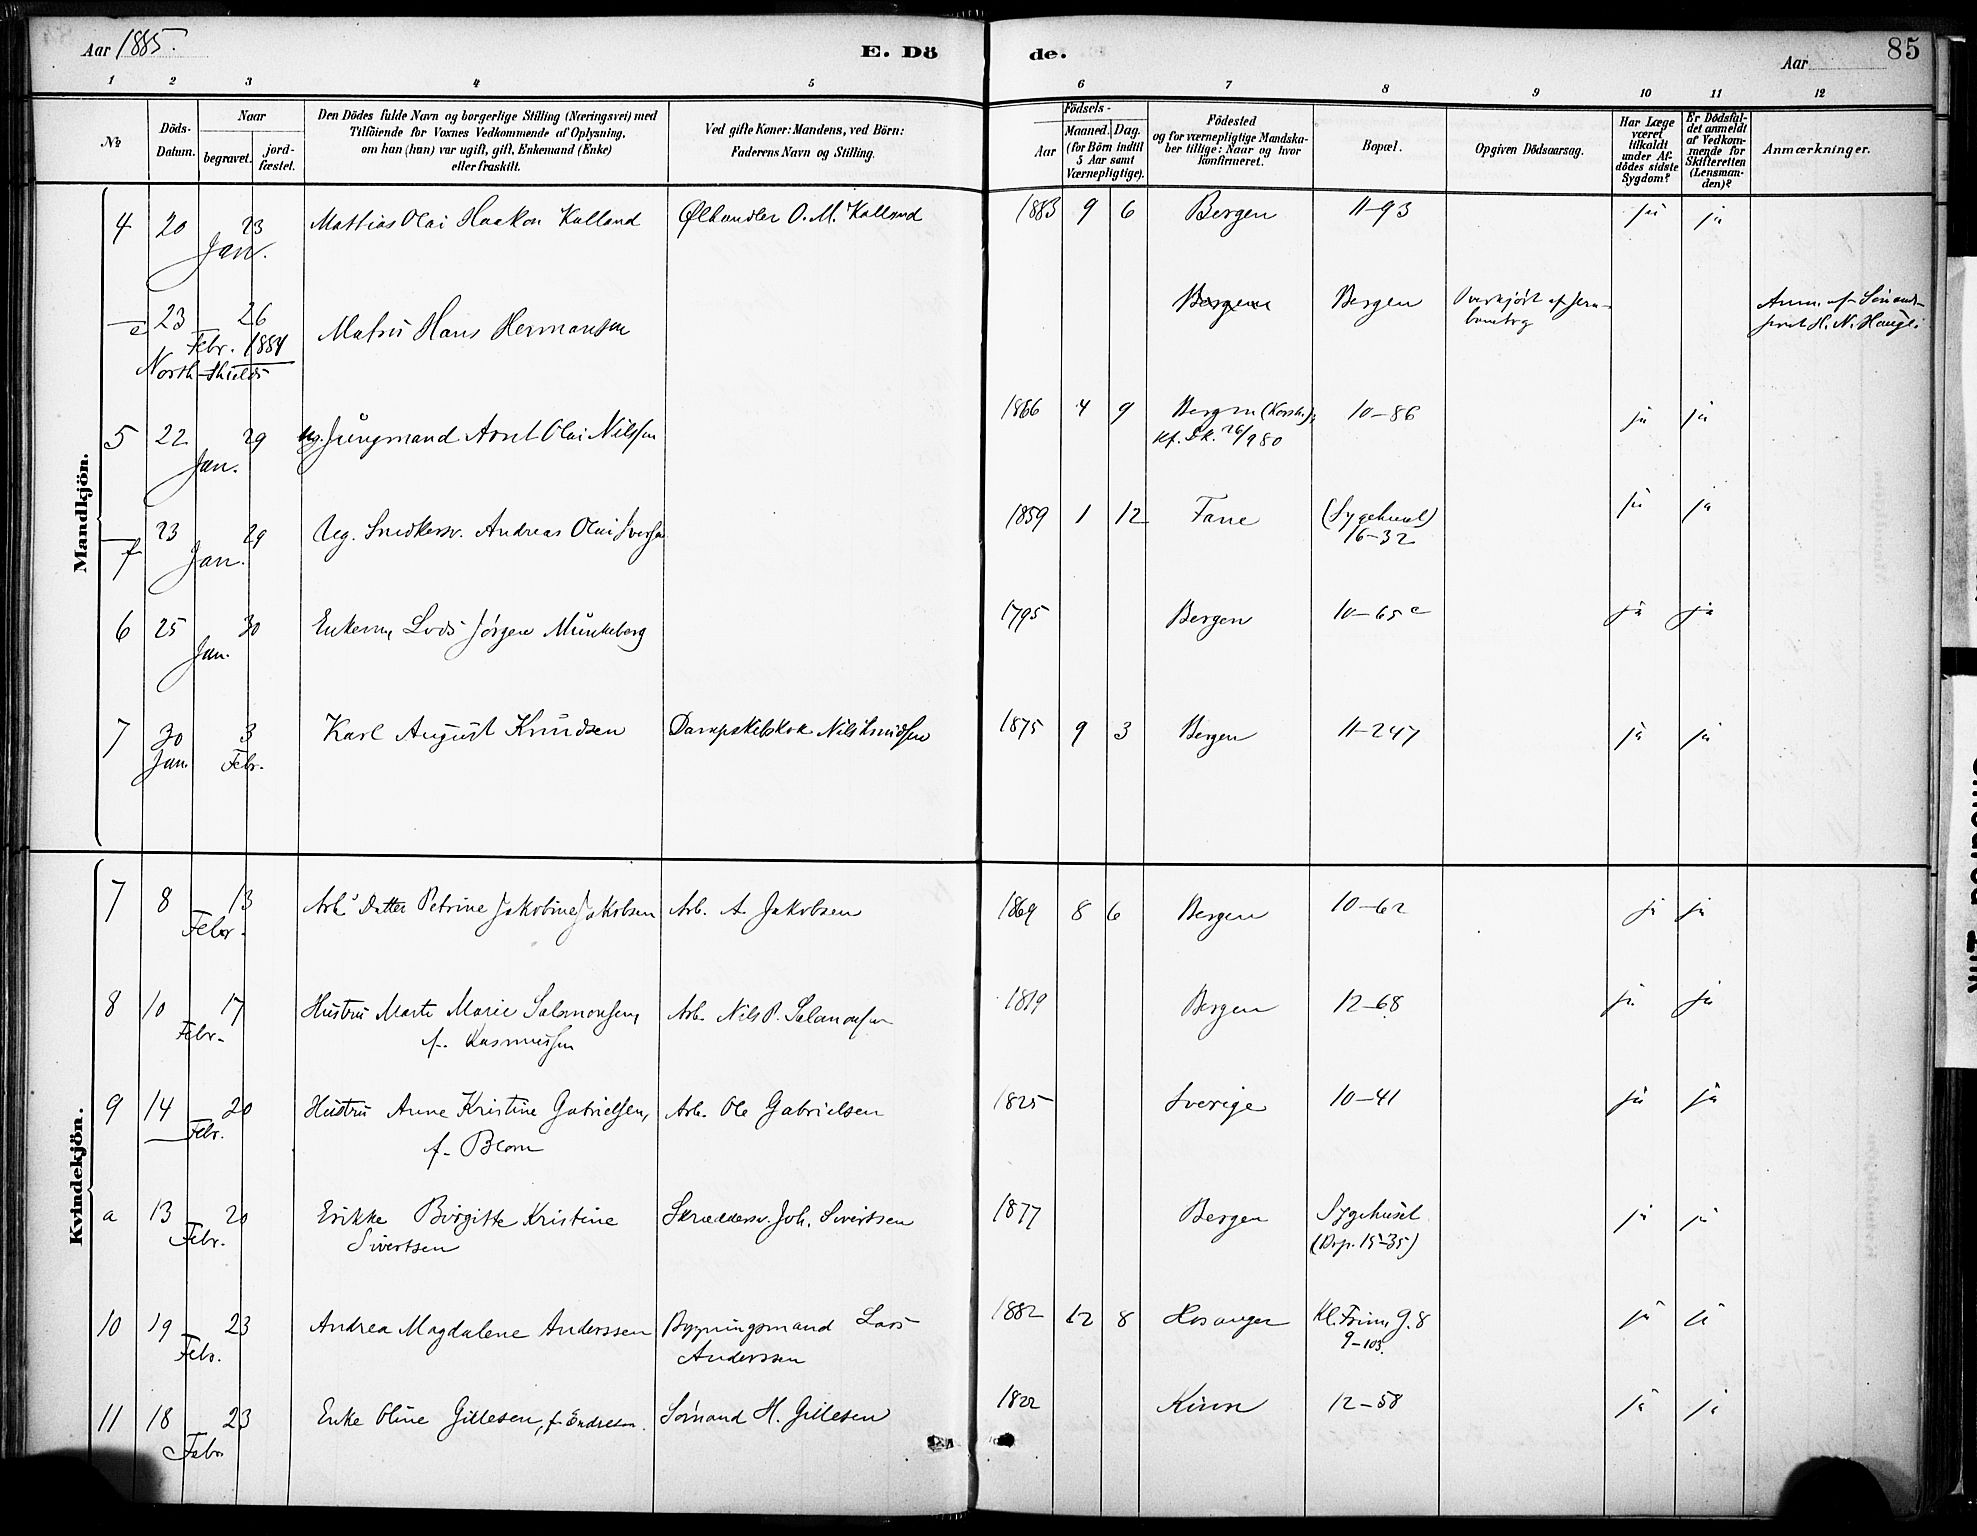 Aar 1885.
E. Dö
de.
Aar
85
1 2 3 4 5 6 7 8 9 10 11 12
№
Döds-Datum.
Naar
begravet.
jord-fæstet.
Den Dödes fulde Navn og borgerlige Stilling (Næringsvei) med
Tilföiende for Voxnes Vedkommende af Oplysning,
om han (hun) var ugift, gift, Enkemand (Enke)
eller fraskilt.
Ved gifte Koner: Mandens, ved Börn:
Faderens Navn og Stilling.
Födsels-
Aar
Maaned. Dag.
(for Börn indtil
5 Aar samt
Værnepligtige).
Födested
og for værnepligtige Mandska-
ber tillige: Naar og hvor
konfirmeret.
Bopæl.
Opgiven Dödsaarsag.
Har Læge
været
tilkaldt
under Af-
dödes sidste
Sygdom?
Er Dödsfal-
det anmeldt
af Vedkom-
mende for
Skifteretten
(Lensman-
den)?
Anmærkninger.
Mandkjön.
4 20 23 Mathias Olai Haakon Kalland Ølhandler O. M. Kalland 1883 9 6 Bergen 11-93 ja ja
Jan.
e 23 26 Matros Hans Hermansen Bergen Bergen Overkjørt af Jern-
Febr. 1884 banetog
North-Shields
Anm. af Sømands-
prest H. N. Haugli
5 22 29 Ug. Jungmand Arnt Olai Nilssen 1866 4 9 Bergen (Korsk.); 10-86 ja ja
Jan. Kf. Dk. 26/9 80
f 23 29 Ug. Snedkersv. Andreas Olai Iversen 1859 1 12 Fane (Sygehuset) ja ja
Jan. 16-32
6 25 30 Enkem. Lods Jørgen Munkeberg 1795 Bergen 10-65c ja ja
Jan.
7 30 3 Karl August Knudsen Dampskibskok Nils Knudsen 1875 9 3 Bergen 11-247 ja ja
Jan. Febr.
Kvindekjön.
7 8 13 Arb's Datter Petrine Jakobine Jakobsen Arb. A. Jakobsen 1869 8 6 Bergen 10-62 ja ja
Febr.
8 10 17 Hustru Marte Marie Salomonsen, Arb. Nils P. Salomonsen 1819 Bergen 12-68 ja ja
Febr. f. Rasmussen
9 14 20 Hustru Anne Kristine Gabrielsen, Arb. Ole Gabrielsen 1825 Sverige 10-41 ja ja
Febr. f. Blom
a 13 20 Erikke Birgitte Kristine Skræddersv. Joh. Sivertsen 1877 Bergen Sygehuset ja ja
Febr. Sivertsen (Bop. 15-35)
10 19 23 Andrea Magdalene Anderssen Bygningsmand Lars 1882 12 8 Hosanger 9-103. ja ja
Febr. Anderssen
11 18 23 Enke Oline Gillesen, f. Endresen. Sømand H. Gillesen 1822 Kinn 12-58 ja ja
Febr.